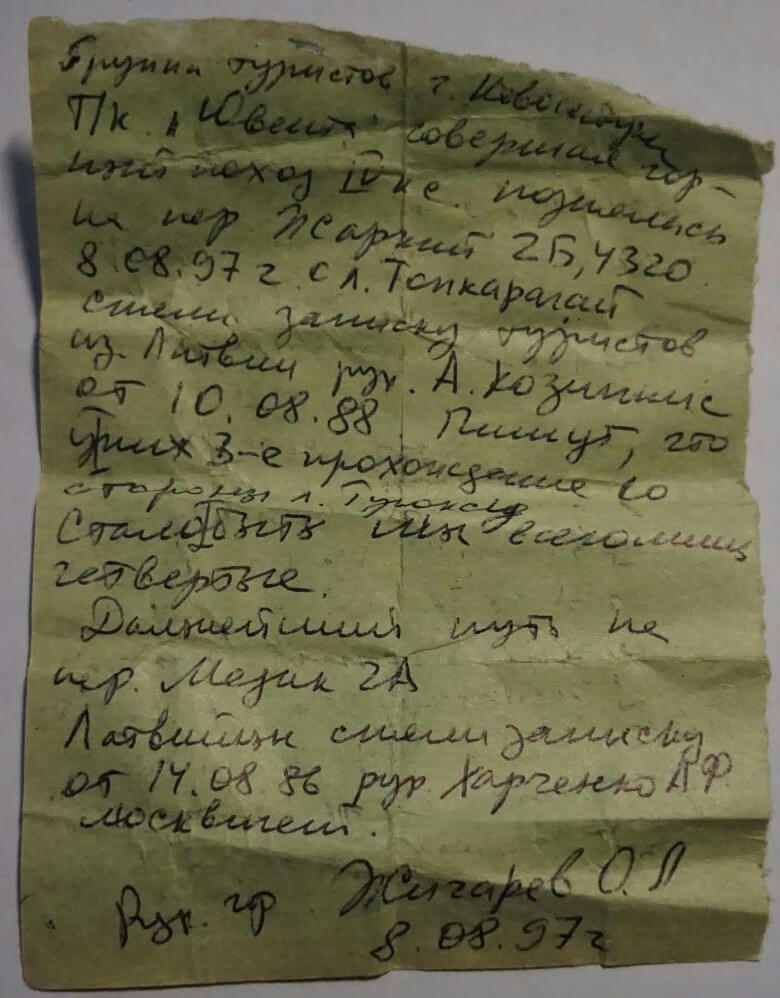 Группа туристов г. Новосибирск
ПК "Ювента" совершая гор-
ный поход IV кс. поднялись
на пер Жаркий 2Б, 4320
8.08.97 г. с л. Топкарагай
сняли записку туристов
из Латвии рук. А. Козинкис
от 10.08.88 Пишут, что
у них 3-е прохождение со
стороны л.
Стало быть мы всего лишь
четвертые.
Дальнейший путь на
пер. Медик 2А
Латвийцы сняли записку
от 14.08.86 рук. Харченко А Ф
москвичей.
Рук. гр Жигарев О. Л
8.08.97 г